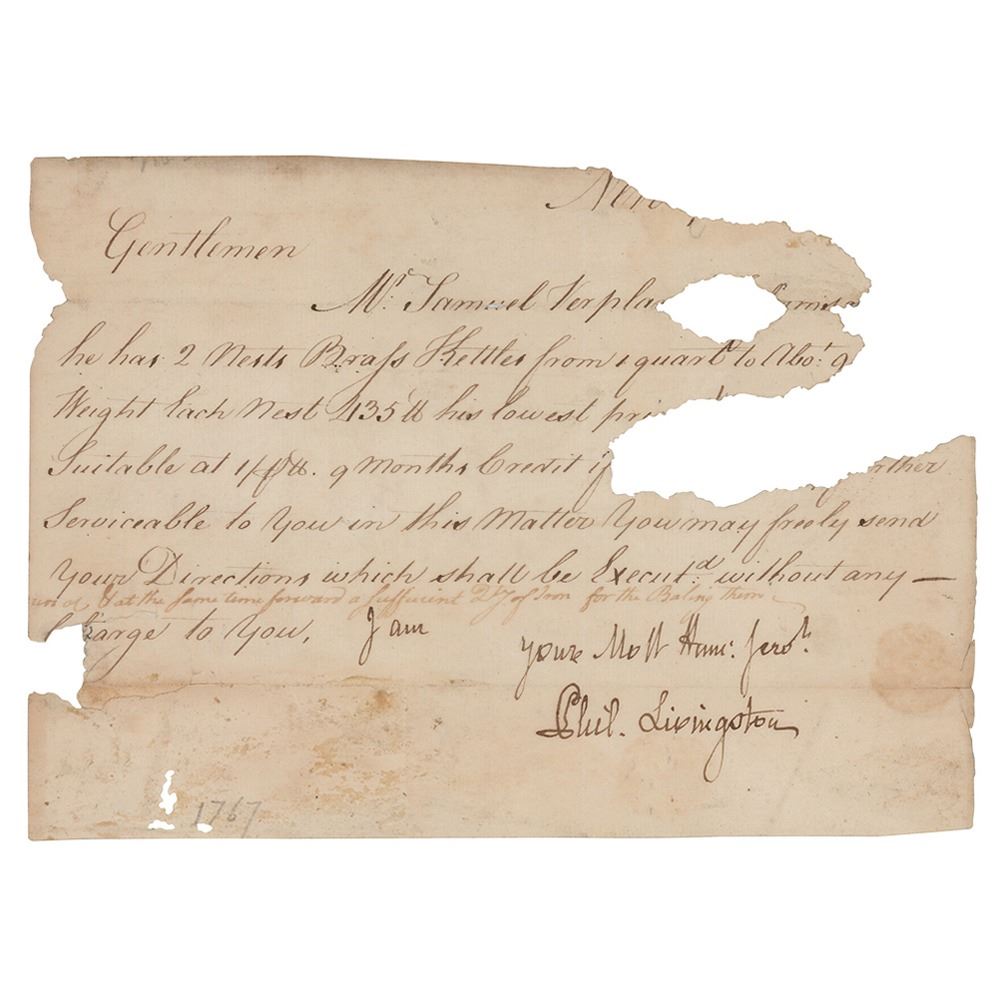 New
Gentlemen
Mr. Samuel Verpla
he has 2 Nests Brass Kettles from 1 quart to Abot. 9
Weight Each Nest 135 lb his lowest pri
Suitable at 9 Months Credit if
Serviceable to You in this Matter You may freely send
Your Directions which shall be Execut.d without any —
& at the same time forward a sufficient Qty of Iron for the Baling them
Charge to You, I am
your Most Hum. Serv.t
Phil. Livingston
1767